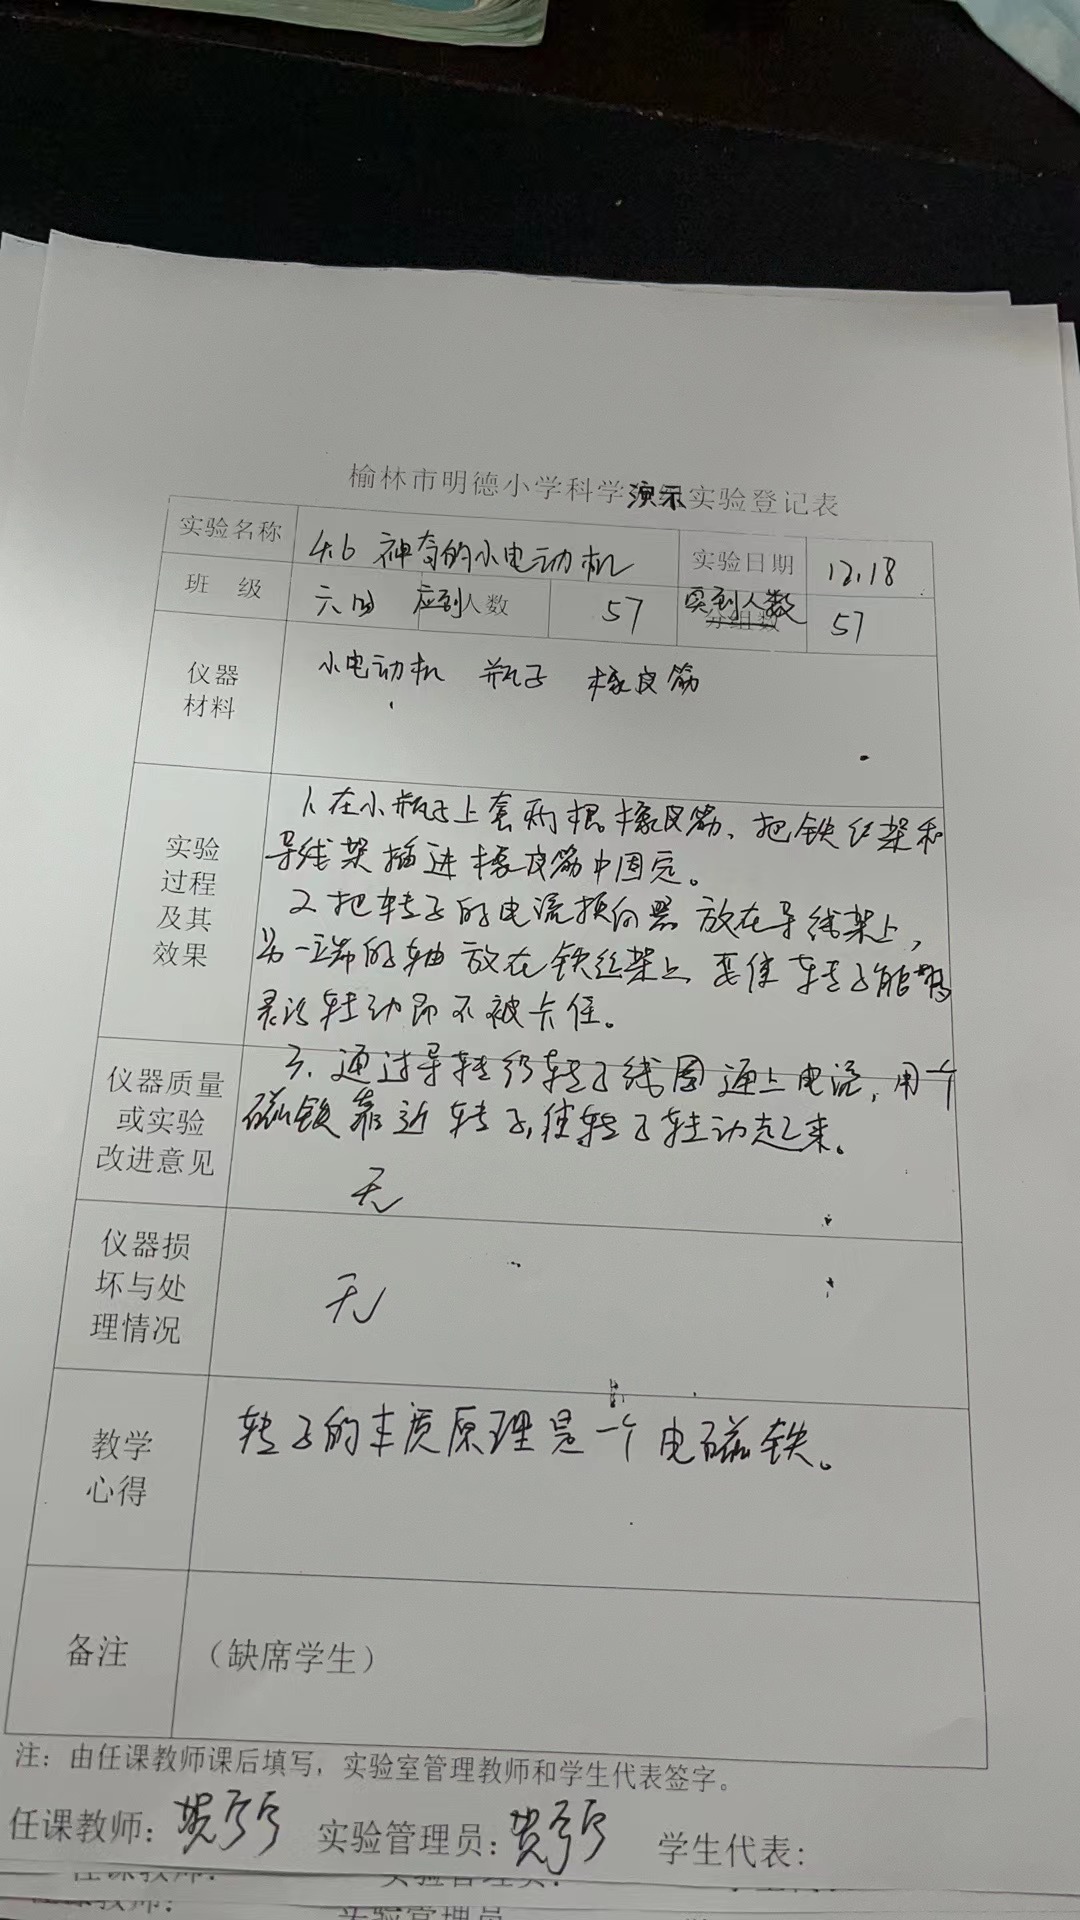 榆林市明德小学科学演示实验登记表
实验名称 4.6 神奇的小电动机 实验日期 12.18
班 级 六四 应到人数 57 实到人数 分组数 57
仪器材料 小电动机 瓶子 橡皮筋
实验过程及其效果
1、在小瓶子上套两根橡皮筋、把铁丝架和
导线架插进橡皮筋中固定。
2、把转子的电流换向器放在导线架上,
另一端的轴放在铁丝架上 要使转子能够
灵活转动即不被卡住。
3、通过导转给转子线圈通上电流,用一个
磁铁靠近转子,使转子转动起来。
仪器质量或实验改进意见 无
仪器损坏与处理情况 无
教学心得 转子的本质原理是一个电磁铁。
备注 (缺席学生)
注:由任课教师课后填写,实验室管理教师和学生代表签字。
任课教师: 实验管理员: 学生代表: